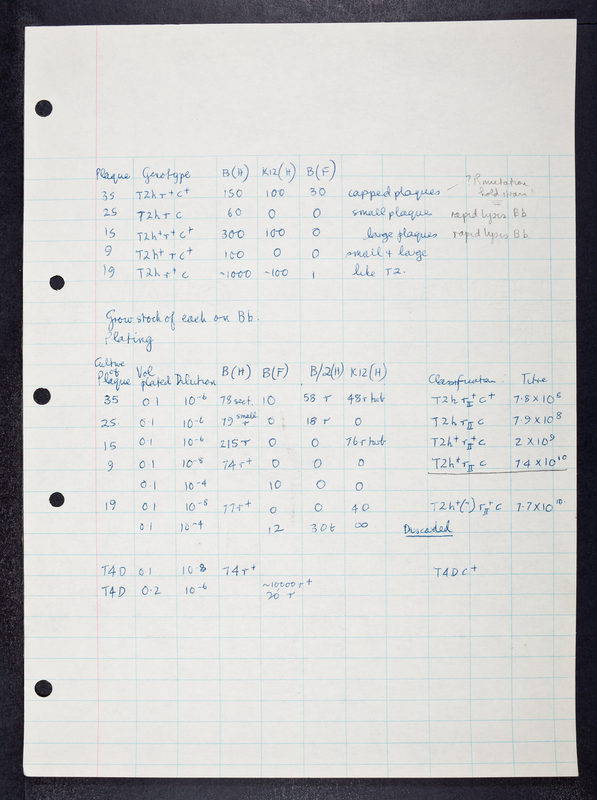 Plaque Genotype B(H) K12(H) B(F)
35 T2h r⁺ c⁺ 150 100 30 capped plaques – ? R mutation
hold strain!
25 T2h r c 60 0 0 small plaque rapid lysis Bb
15 T2h⁺ r⁺ c⁺ 300 100 0 large plaques rapid lysis Bb
9 T2h⁺ r c⁺ 100 0 0 small + large
19 T2h r⁺ c ~1000 ~100 1 like T2.
Grow stock of each on Bb.
Plating
Culture of Plaque Vol plated Dilution B(H) B(F) B/2(H) K12(H) Classification Titre
35 0.1 10⁻⁶ 78 sect. 10 58 r 48 r turb T2h r_II⁺ c⁺ 7.8 × 10⁸
25. 0.1 10⁻⁶ 79 small r 0 18 r 0 T2h r_II c 7.9 × 10⁸
15 0.1 10⁻⁶ 215 r 0 0 76 r turb T2h⁺ r_II⁺ c 2 × 10⁹
9 0.1 10⁻⁸ 74 r⁺ 0 0 0 T2h⁺ r_II c 7.4 × 10¹⁰
0.1 10⁻⁴ 10 0 0
19 0.1 10⁻⁸ 77 r⁺ 0 0 40 T2h⁺(-) r_II⁺ c 7.7 × 10¹⁰
0.1 10⁻⁴ 12 30t ∞ Discarded
T4D 0.1 10⁻⁸ 74 r⁺ T4D c⁺
T4D 0.2 10⁻⁶ ~10000 r⁺
20 r